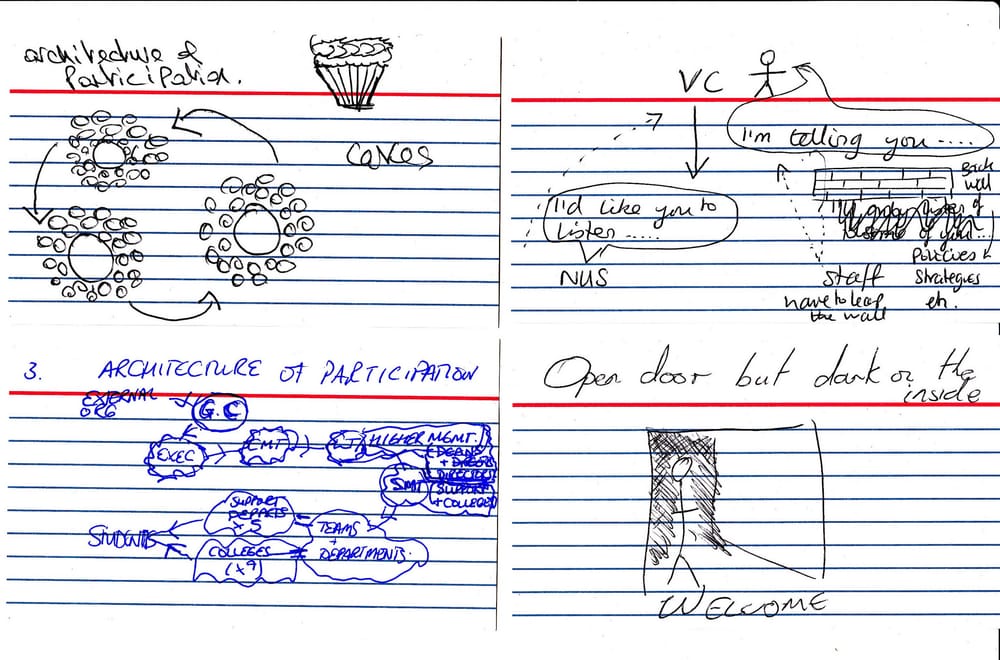 architecture of
Participation.
cakes
VC
I'm telling you.....
Brick
wall
I'd like you to
Listen.....
NUS
some of you...
Policies
Staff
Strategies
have to leap
etc.
the wall
3. ARCHITECTURE of PARTICIPATION
EXTERNAL
ORG
G.C
EXEC
EMT
HIGHER MGMT.
DEANS
+
DIRECTORS
SMT
SUPPORT
+ COLLEGES
SUPPORT
x 5
STUDENTS
TEAMS
+
DEPARTMENTS.
COLLEGES
(x9)
Open door but dark on the
inside
WELCOME